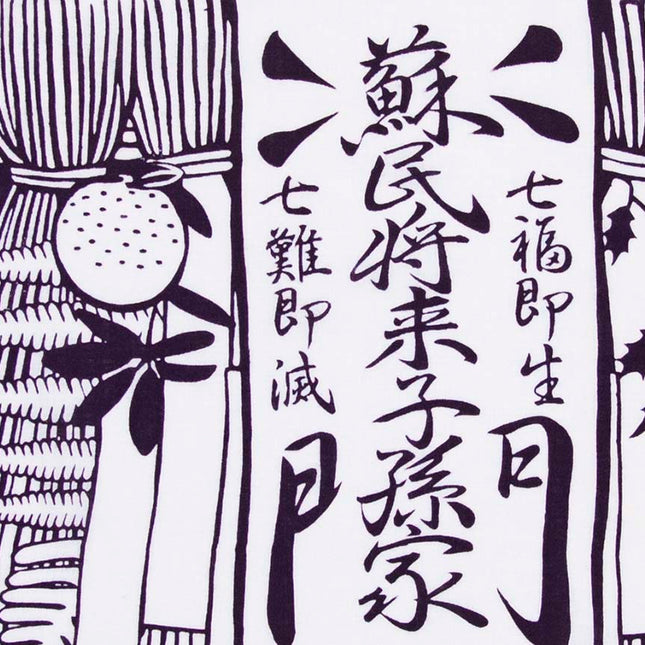 七福即生
蘇民将来子孫家門
七難即滅